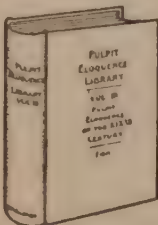 PULPIT
ELOQUENCE
LIBRARY
VOL
PULPIT
ELOQUENCE
LIBRARY
VOL
PULPIT
ELOQUENCE
OF THE
CENTURY